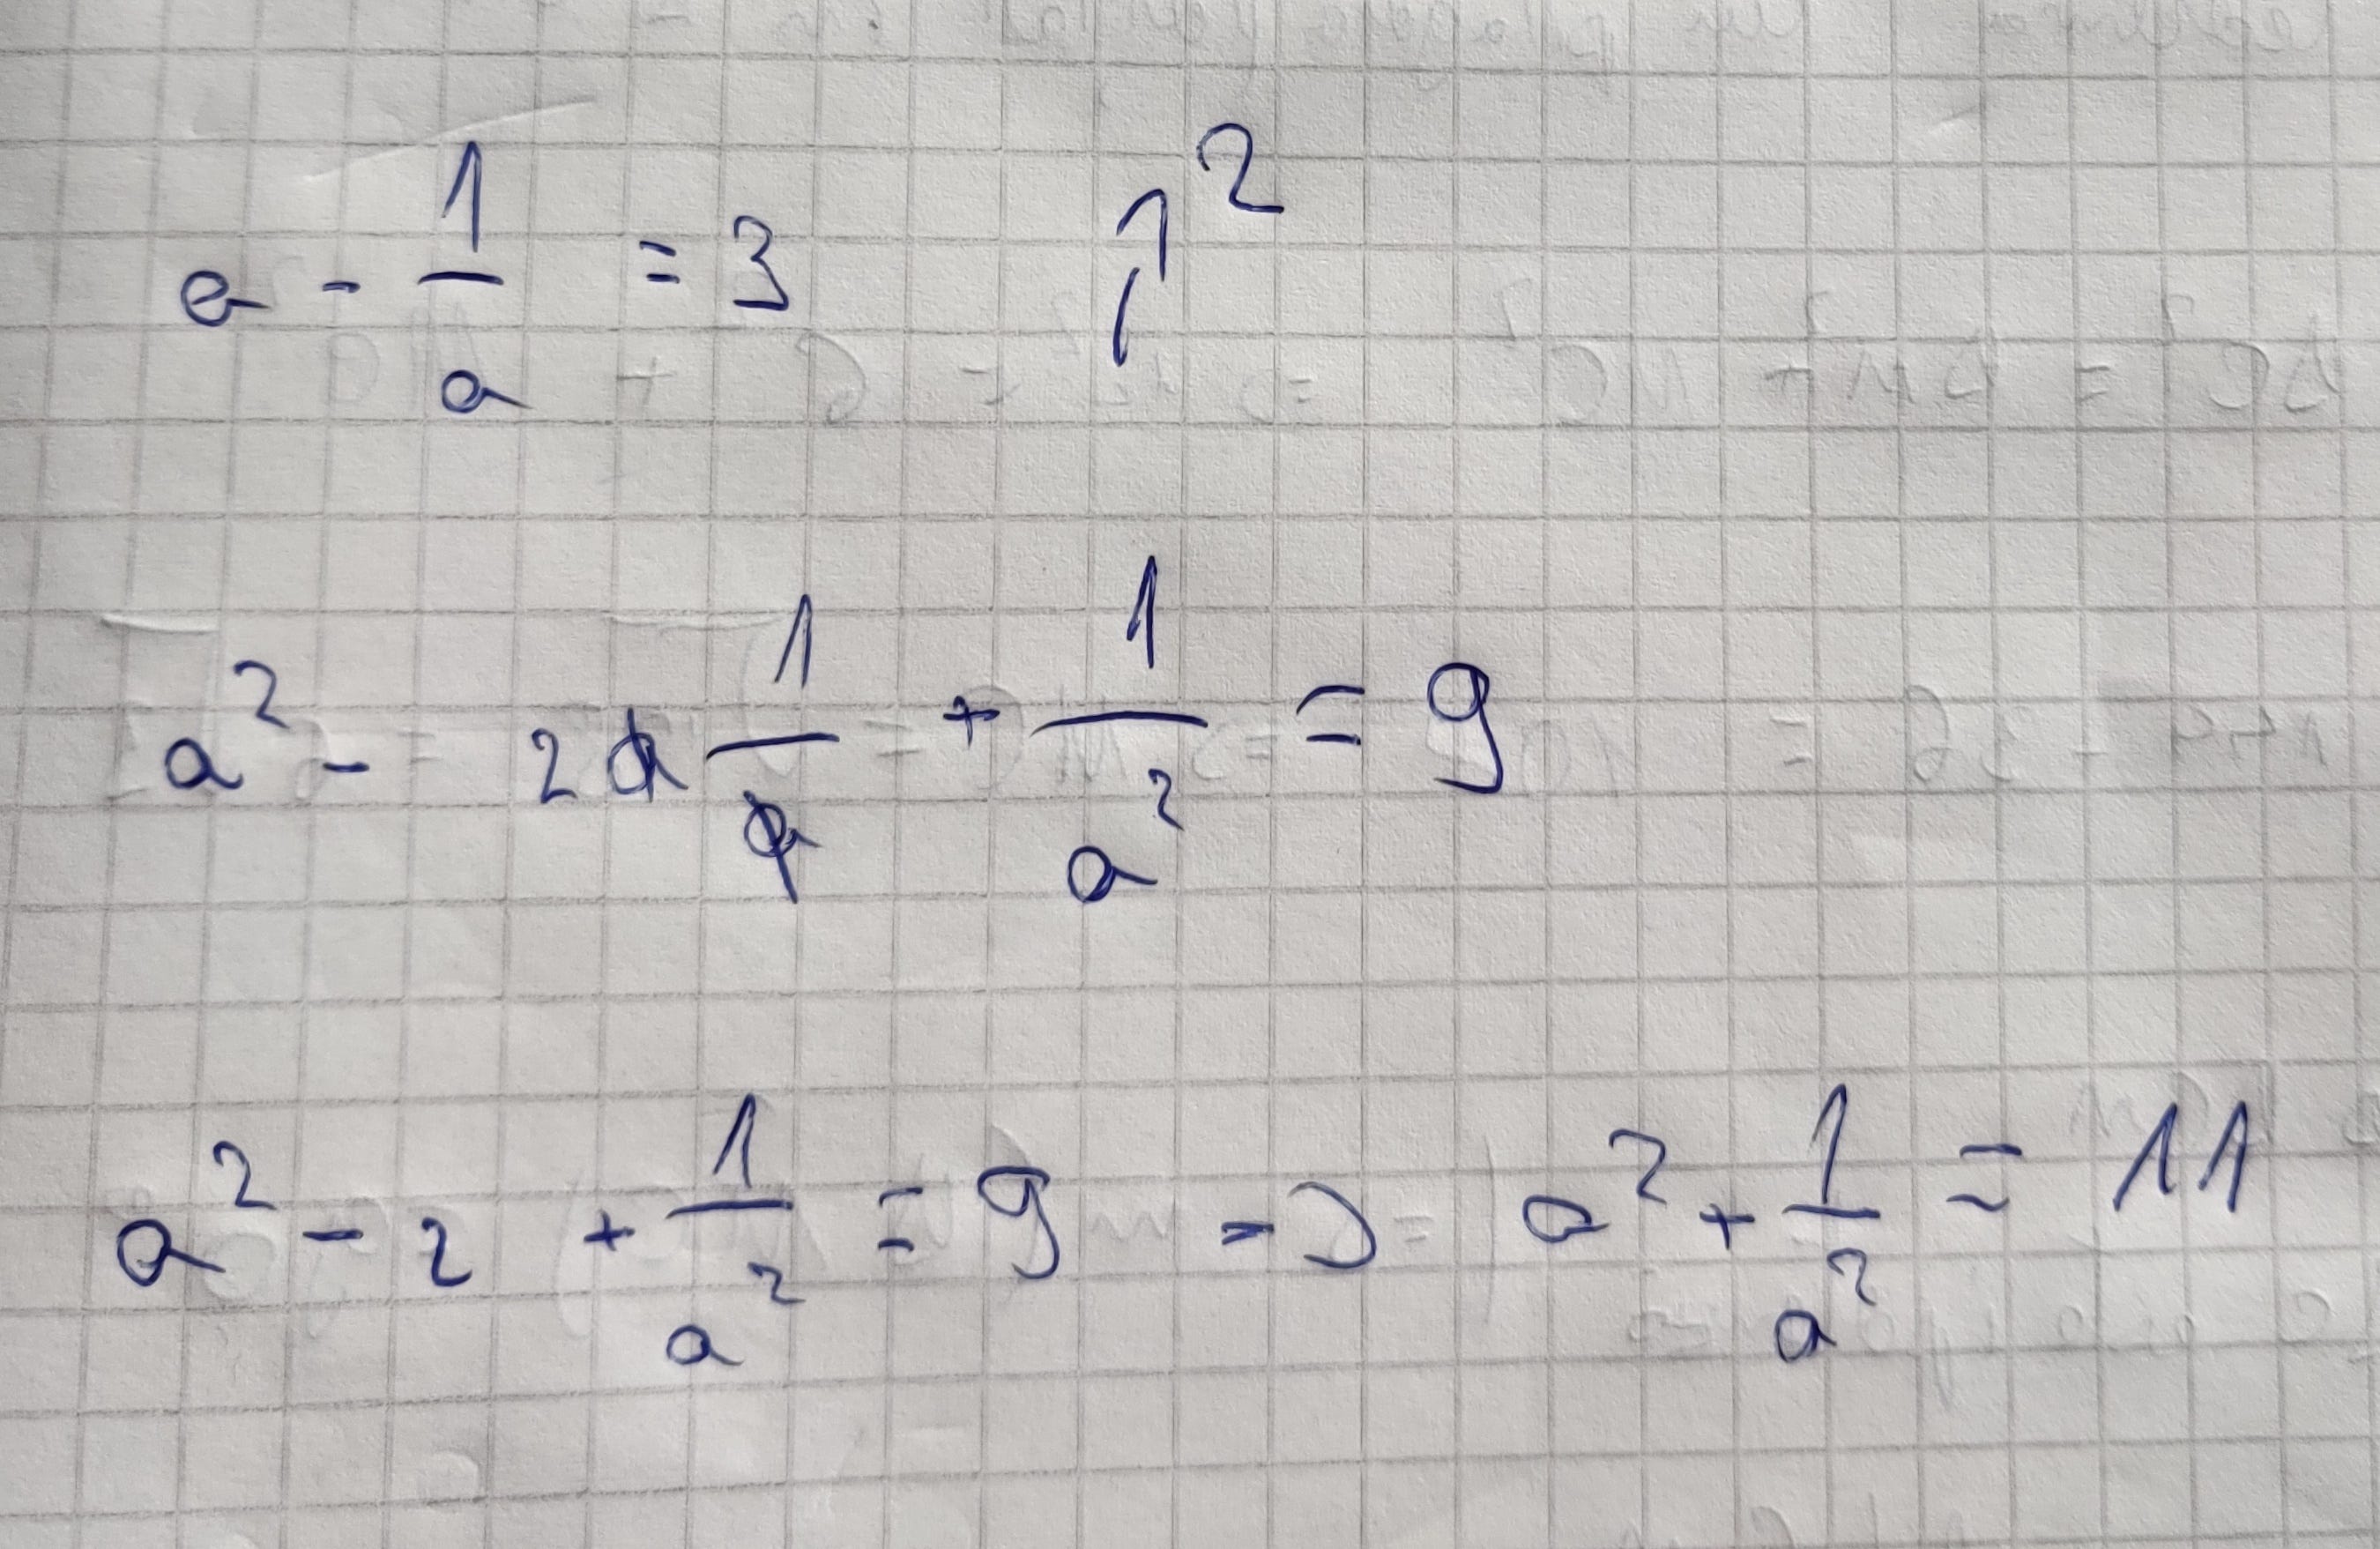 a - 1/a = 3 ↑²
a² - 2a 1/a + 1/a² = 9
a² - 2 + 1/a² = 9 => a² + 1/a² = 11